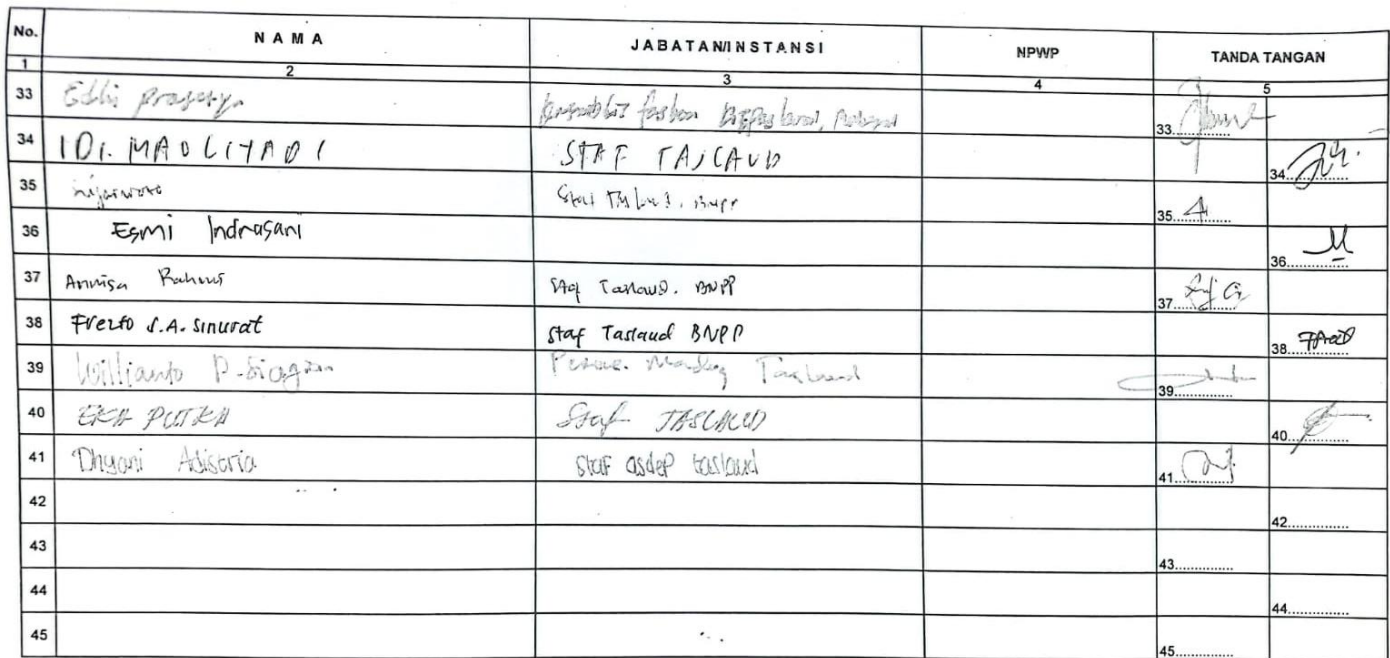 No. NAMA JABATAN/INSTANSI NPWP TANDA TANGAN
1 2 3 4 5
33 Eddi Prasetyo 33
34 IDI. MAULIYADI STAF TASLAUD 34
35 Staf Taslaud. BNPP 35
36 Esmi Indrasari 36
37 Annisa Rahmi Staf Taslaud. BNPP 37
38 Frezto S.A. Sinurat Staf Taslaud BNPP 38
39 Willianto P. Siagian Taslaud 39
40 EKA PUTRA Staf TASLAUD 40
41 Dhyani Adistria Staf asdep taslaud 41
42 42
43 43
44 44
45 45